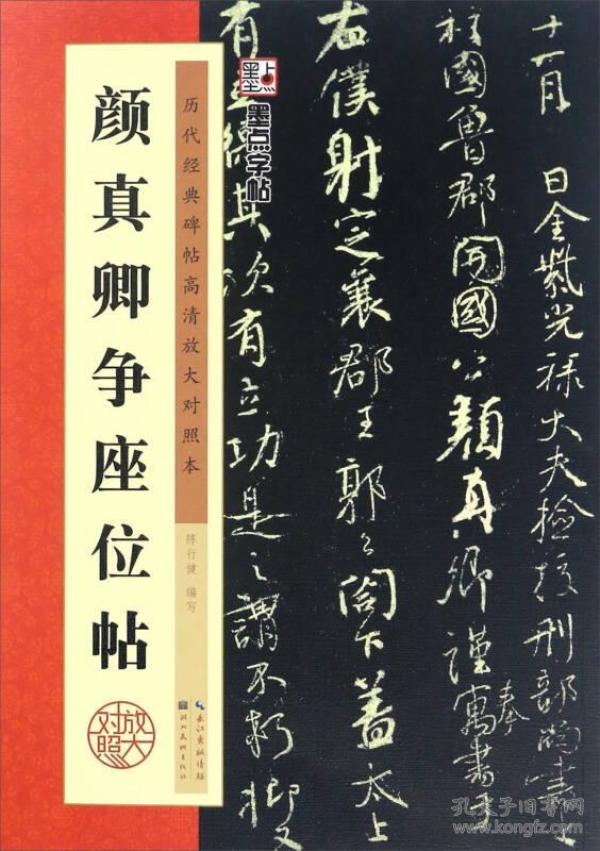 颜真卿争座位帖
放大对照
历代经典碑帖高清放大对照本
陈行健 编写
长江出版传媒
湖北美术出版社
墨点
墨点字帖
十一月 日金紫光禄大夫检校刑部尚書上
柱國魯郡開國公顏真卿謹奉寓書于
右僕射定襄郡王郭公閤下蓋太上
有立德其次有立功是之謂不朽抑又
孔夫子旧书网
www.kongfz.com